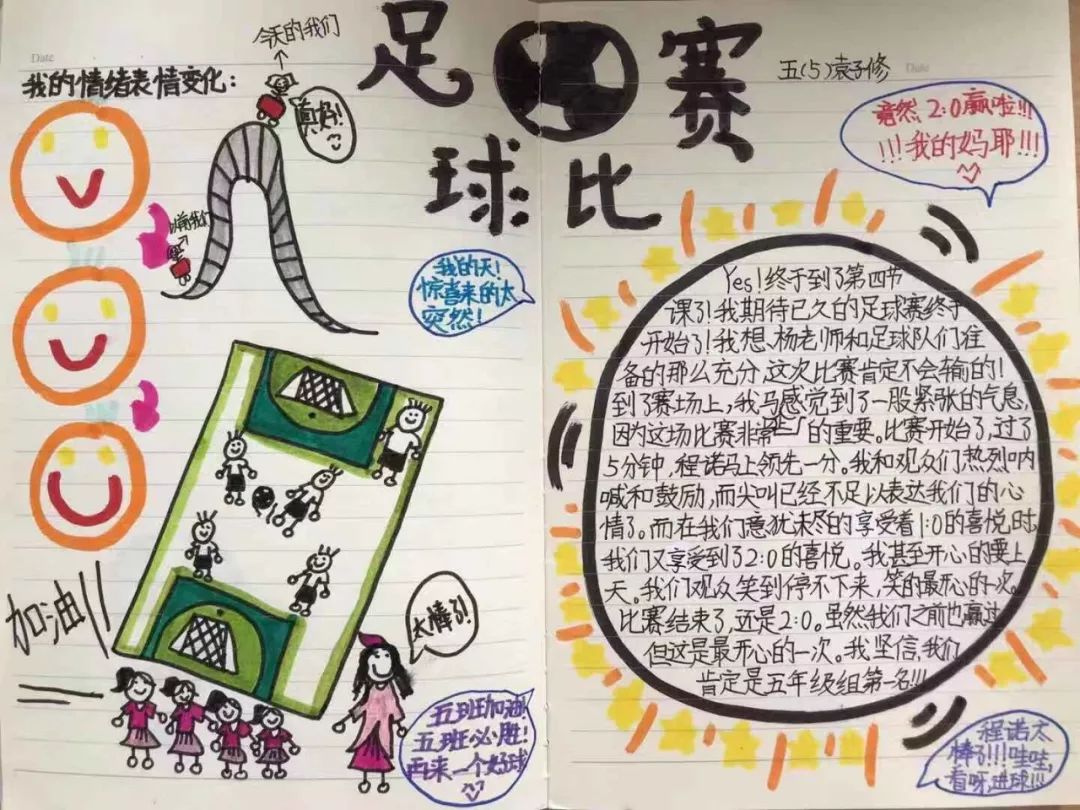 Date
足
赛
球
比
五(5)袁子修
Date
今天的我们
我的情绪表情变化:
真好!
我的天!
惊喜来的太
突然!
加油!!
太棒了!
五班加油!
五班必胜!
再来一个好球
竟然2:0赢啦!!!
!!!我的妈耶!!!
Yes!终于到了第四节
课了!我期待已久的足球赛终于
开始了!我想、杨老师和足球队们准
备的那么充分,这次比赛肯定不会输的!
到了赛场上,我马感觉到了一股紧张的气息,
因为这场比赛非常 的重要。比赛开始了,过了
5分钟,程诺马上领先一分。我和观众们热烈呐
喊和鼓励,而尖叫已经不足以表达我们的心
情了。而在我们意犹未尽的享受着1:0的喜悦时,
我们又享受到了2:0的喜悦。我甚至开心的要上
天。我们观众笑到停不下来,笑的最开心的一次。
比赛结束了,还是2:0。虽然我们之前也赢过
但这是最开心的一次。我坚信,我们
肯定是五年级组第一名!!!
程诺太
棒了!!!哇哇,
看呀,进球!!!